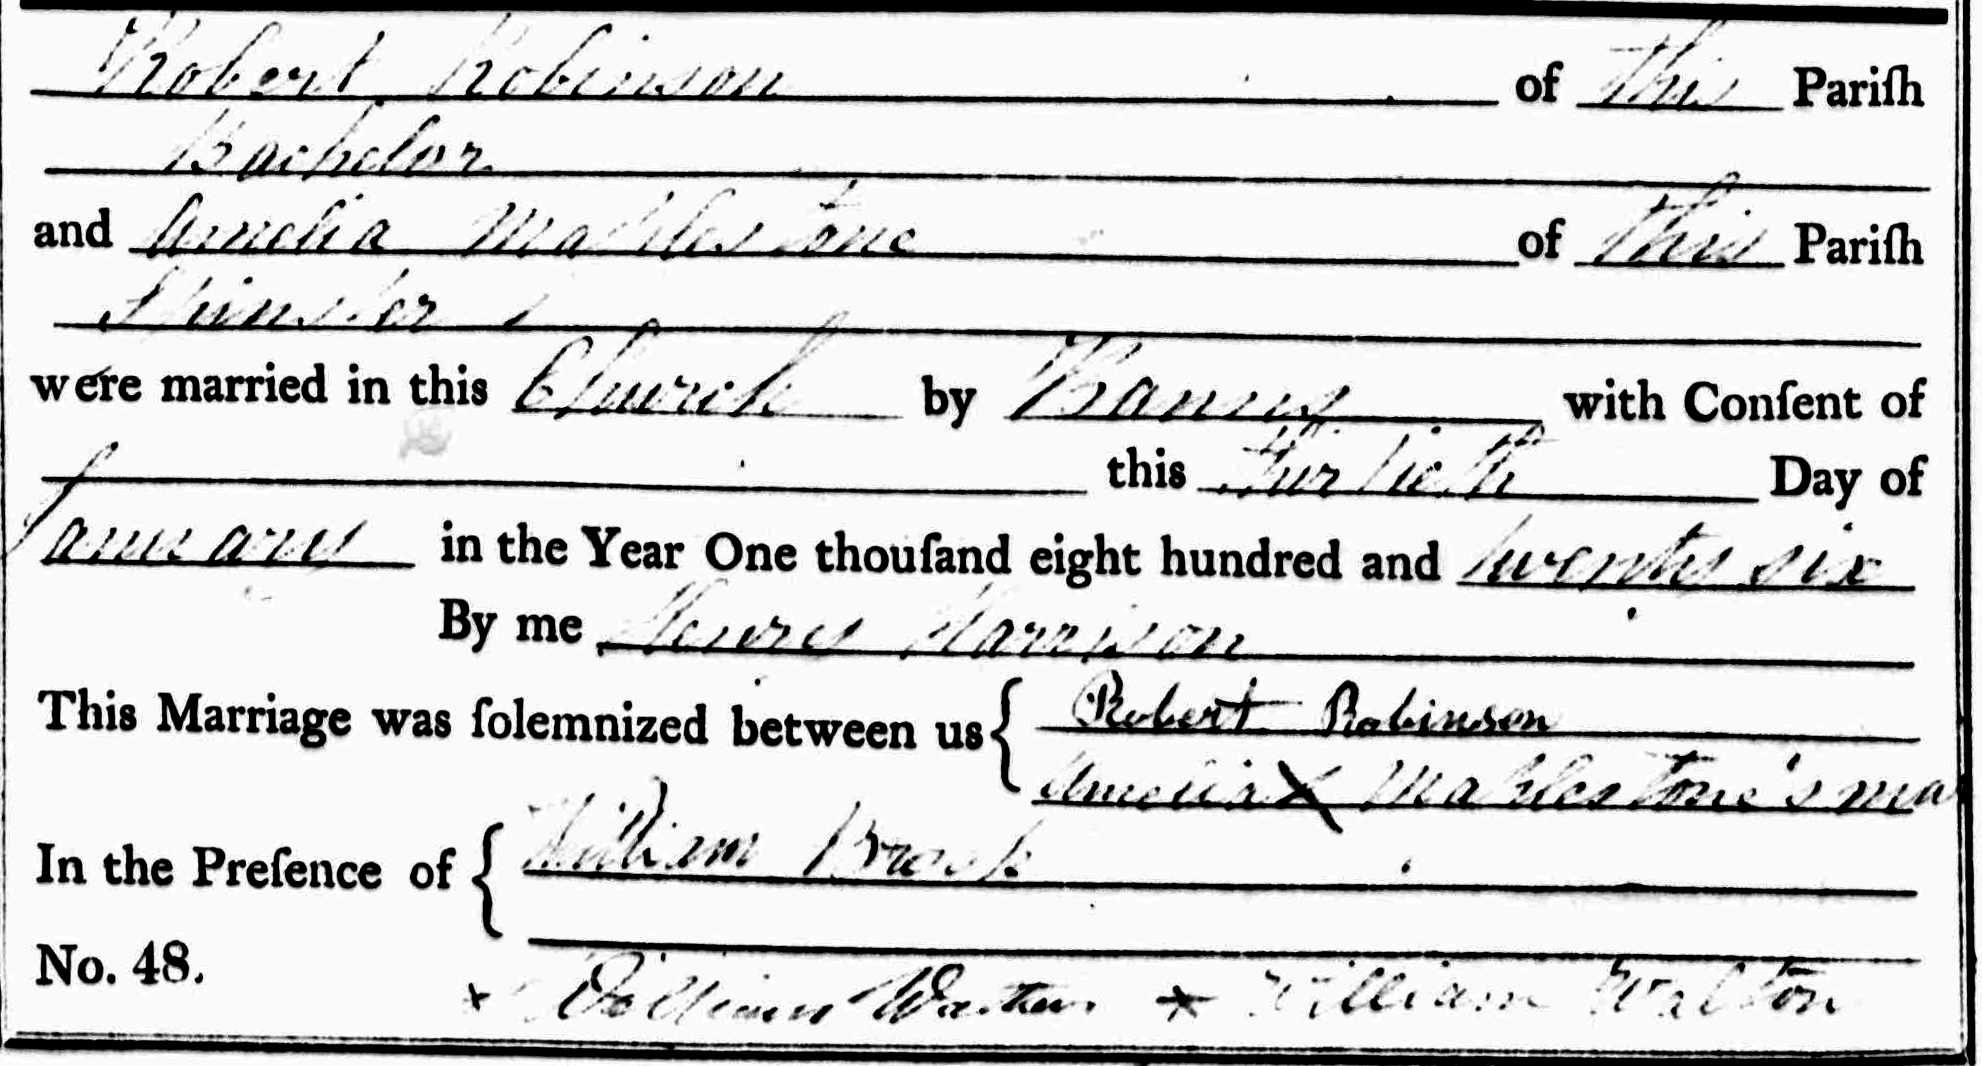 Robert Robinson of this Pariſh
Bachelor
and Amelia Mablestone of this Pariſh
Spinster
were married in this Church by Banns with Conſent of
this thirtieth Day of
January in the Year One thouſand eight hundred and twenty six
By me Henry Harrison
This Marriage was ſolemnized between us { Robert Robinson
Amelia X Mablestone's ma
In the Preſence of { William Brook
No. 48.
x William Walton x William Walton